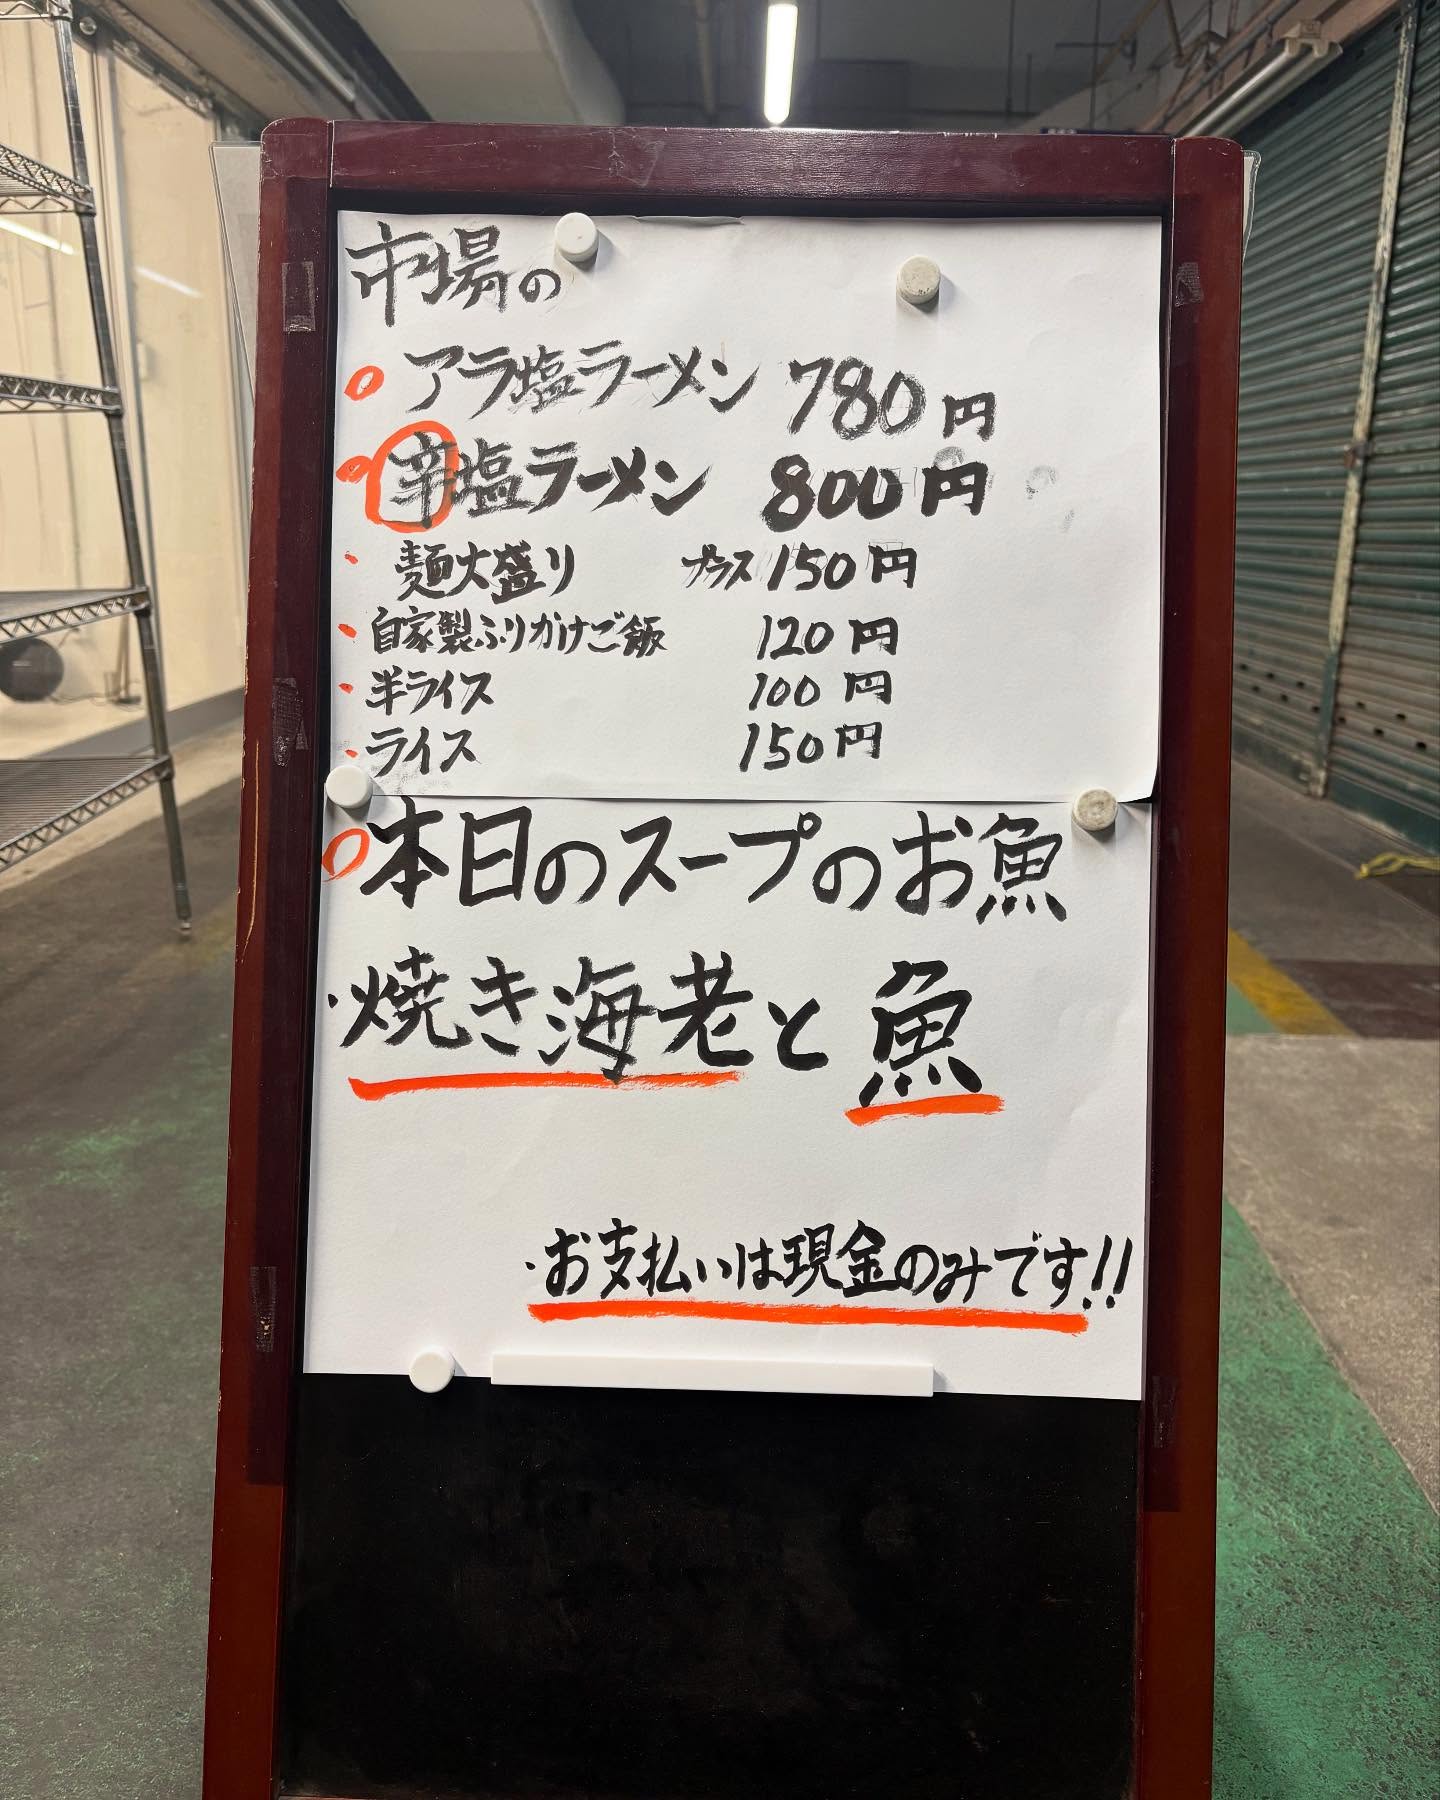 市場の
アラ塩ラーメン 780円
辛塩ラーメン 800円
・麺大盛り プラス150円
・自家製ふりかけご飯 120円
・半ライス 100円
・ライス 150円
本日のスープのお魚
・焼き海老と魚
・お支払いは現金のみです!!